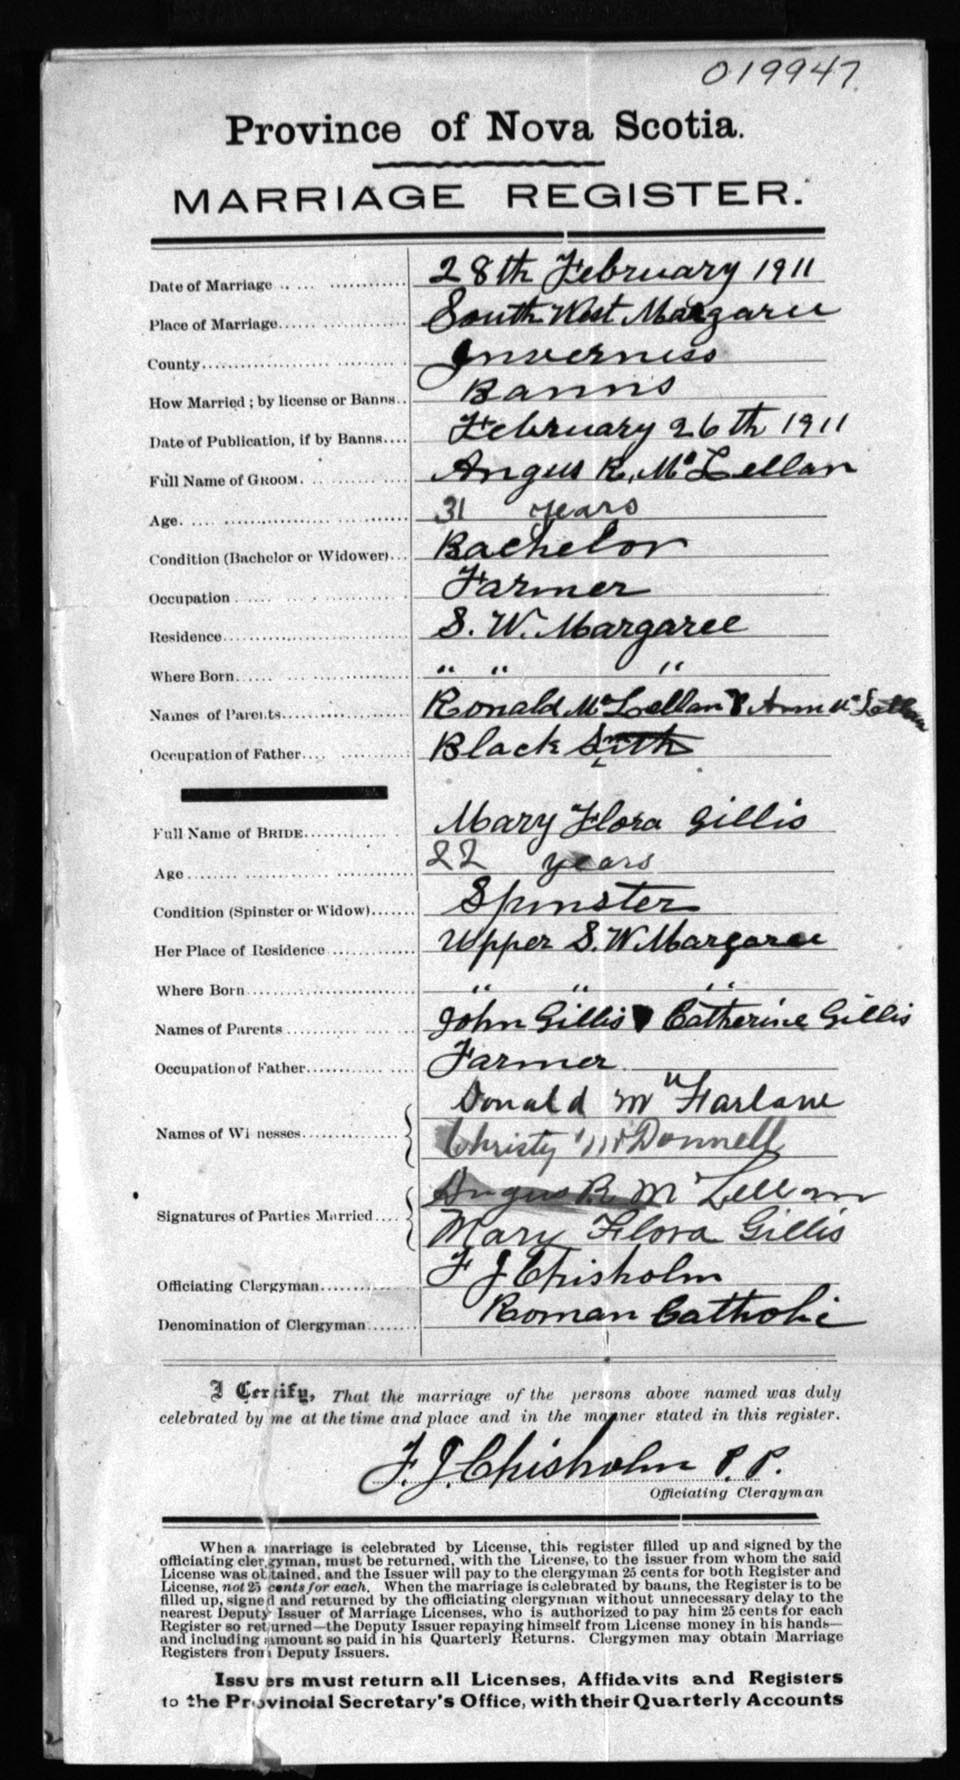 019947
Province of Nova Scotia.
MARRIAGE REGISTER.
Date of Marriage 28th February 1911
Place of Marriage South West Margaree
County Inverness
How Married ; by license or Banns Banns
Date of Publication, if by Banns February 26th 1911
Full Name of GROOM Angus R. McLellan
Age 31 years
Condition (Bachelor or Widower) Bachelor
Occupation Farmer
Residence S. W. Margaree
Where Born " " "
Names of Parents Ronald McLellan & Ann McLellan
Occupation of Father Black Smith
Full Name of BRIDE Mary Flora Gillis
Age 22 years
Condition (Spinster or Widow) Spinster
Her Place of Residence Upper S. W. Margaree
Where Born " " "
Names of Parents John Gillis & Catherine Gillis
Occupation of Father Farmer
Donald McFarlane
Names of Witnesses Christy McDonnell
Angus R McLellan
Signatures of Parties Married Mary Flora Gillis
Officiating Clergyman F J Chisholm
Denomination of Clergyman Roman Catholic
I Certify, That the marriage of the persons above named was duly
celebrated by me at the time and place and in the manner stated in this register.
F. J. Chisholm P. P.
Officiating Clergyman
When a marriage is celebrated by License, this register filled up and signed by the
officiating clergyman, must be returned, with the License, to the issuer from whom the said
License was obtained, and the Issuer will pay to the clergyman 25 cents for both Register and
License, not 25 cents for each. When the marriage is celebrated by banns, the Register is to be
filled up, signed and returned by the officiating clergyman without unnecessary delay to the
nearest Deputy Issuer of Marriage Licenses, who is authorized to pay him 25 cents for each
Register so returned—the Deputy Issuer repaying himself from License money in his hands—
and including amount so paid in his Quarterly Returns. Clergymen may obtain Marriage
Registers from Deputy Issuers.
Issuers must return all Licenses, Affidavits and Registers
to the Provincial Secretary's Office, with their Quarterly Accounts